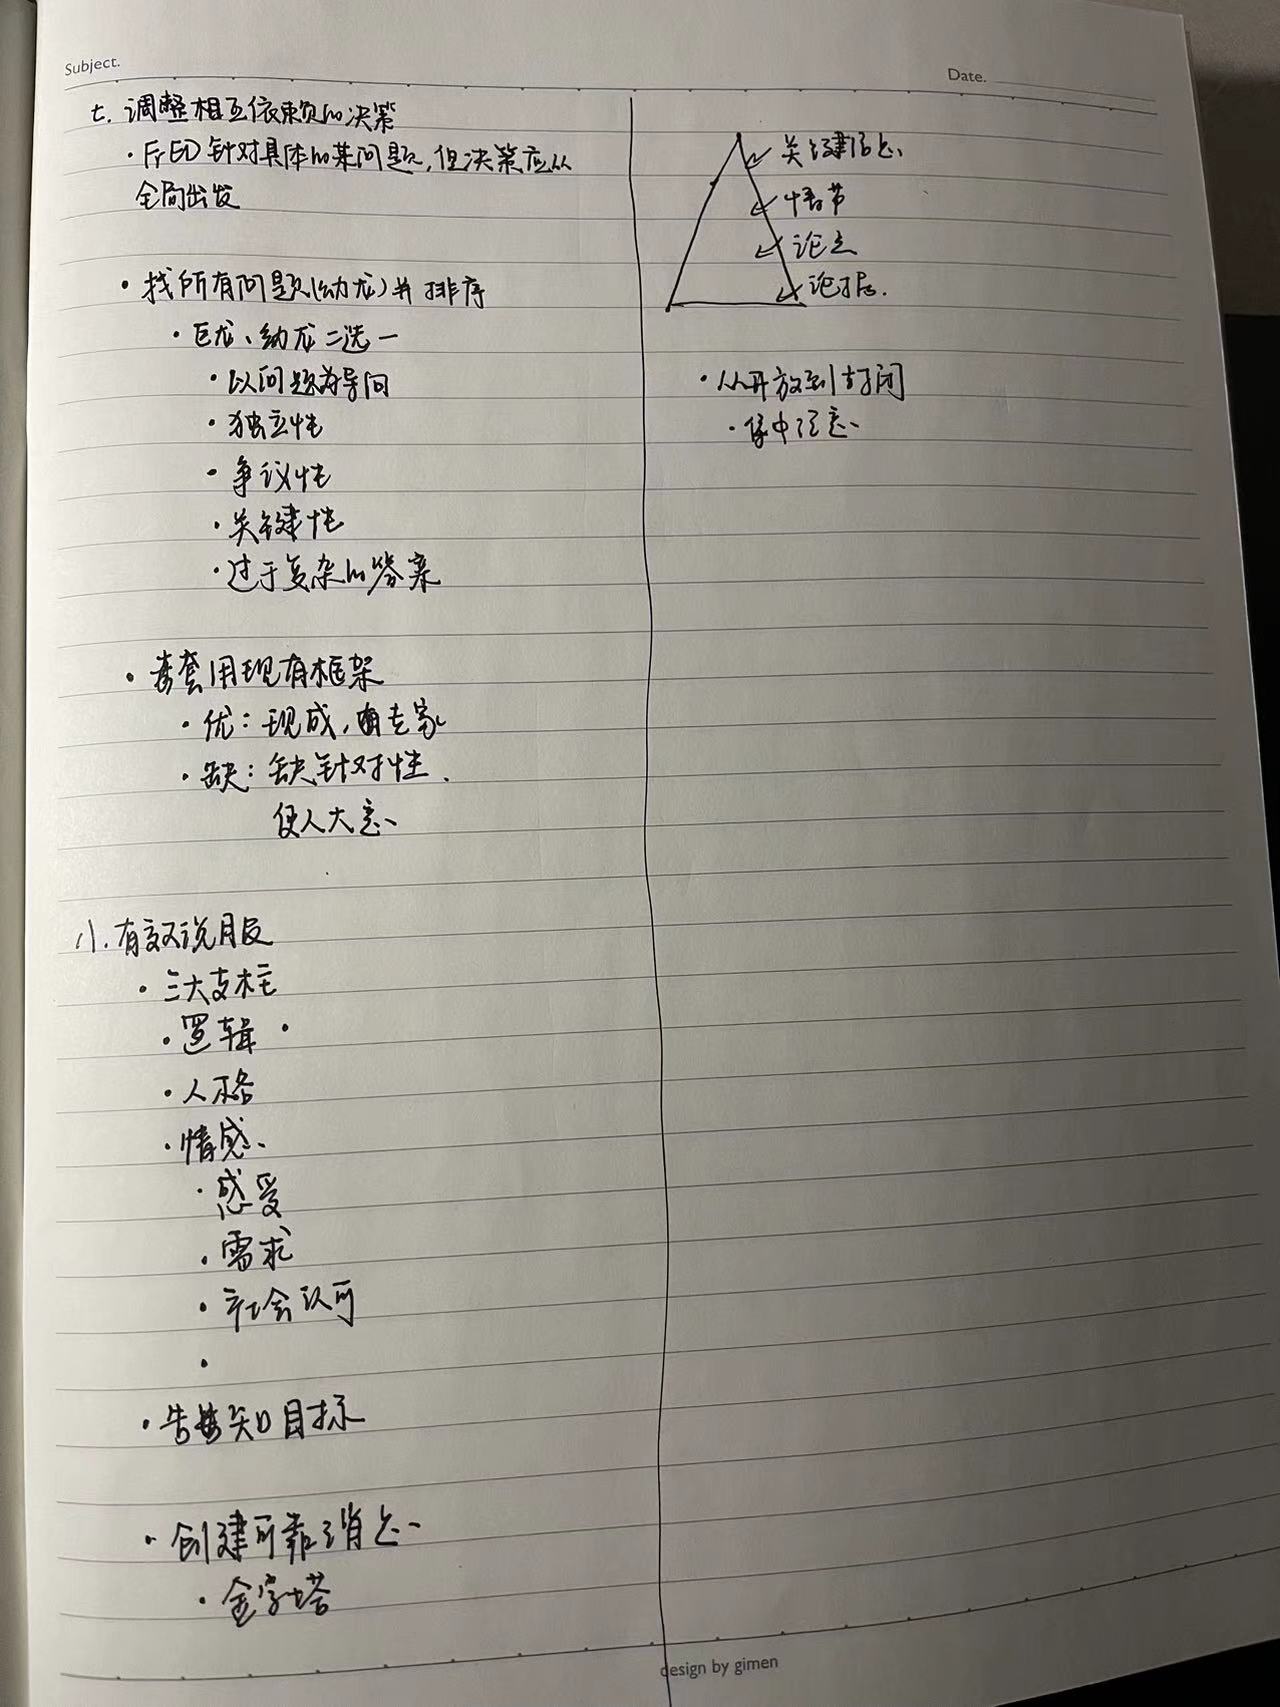 Subject.
Date.
七.调整相互依赖的决策
·FrED针对具体的某问题,但决策应从
全局出发
·找所有问题(幼龙)并排序
·巨龙、幼龙二选一
·以问题为导向
·独立性
·争议性
·关键性
·过于复杂的答案
·套用现有框架
·优:现成,由专家
·缺:缺针对性.
使人大意
八.有效说服
·三大支柱
·逻辑·
·人格
·情感
·感受
·需求
·社会认可
·
·告知目标
·创建可靠消息
·金字塔
关键信息
情节
论点
论据.
·从开放到封闭
·集中注意
design by gimen